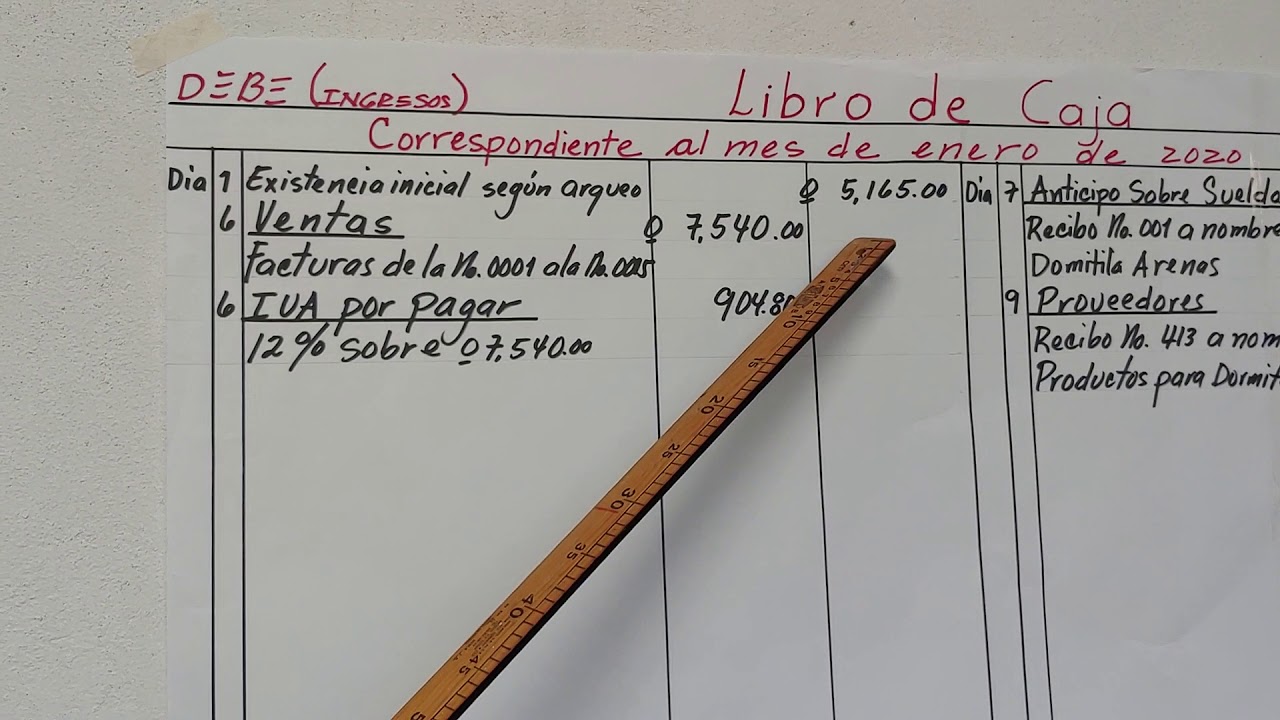 DEBE (INGRESOS) Libro de Caja
Correspondiente al mes de enero de 2020
Dia 1 Existencia inicial según arqueo Q 5,165.00
6 Ventas Q 7,540.00
Facturas de la No. 0001 a la No. 0015
6 IVA por pagar 904.80
12% sobre Q7,540.00
Dia 7 Anticipo Sobre Sueldo
Recibo No. 001 a nombre
Domitila Arenas
9 Proveedores
Recibo No. 413 a nom
Productos para Dormit
10
15
20
25
30
35
40
45